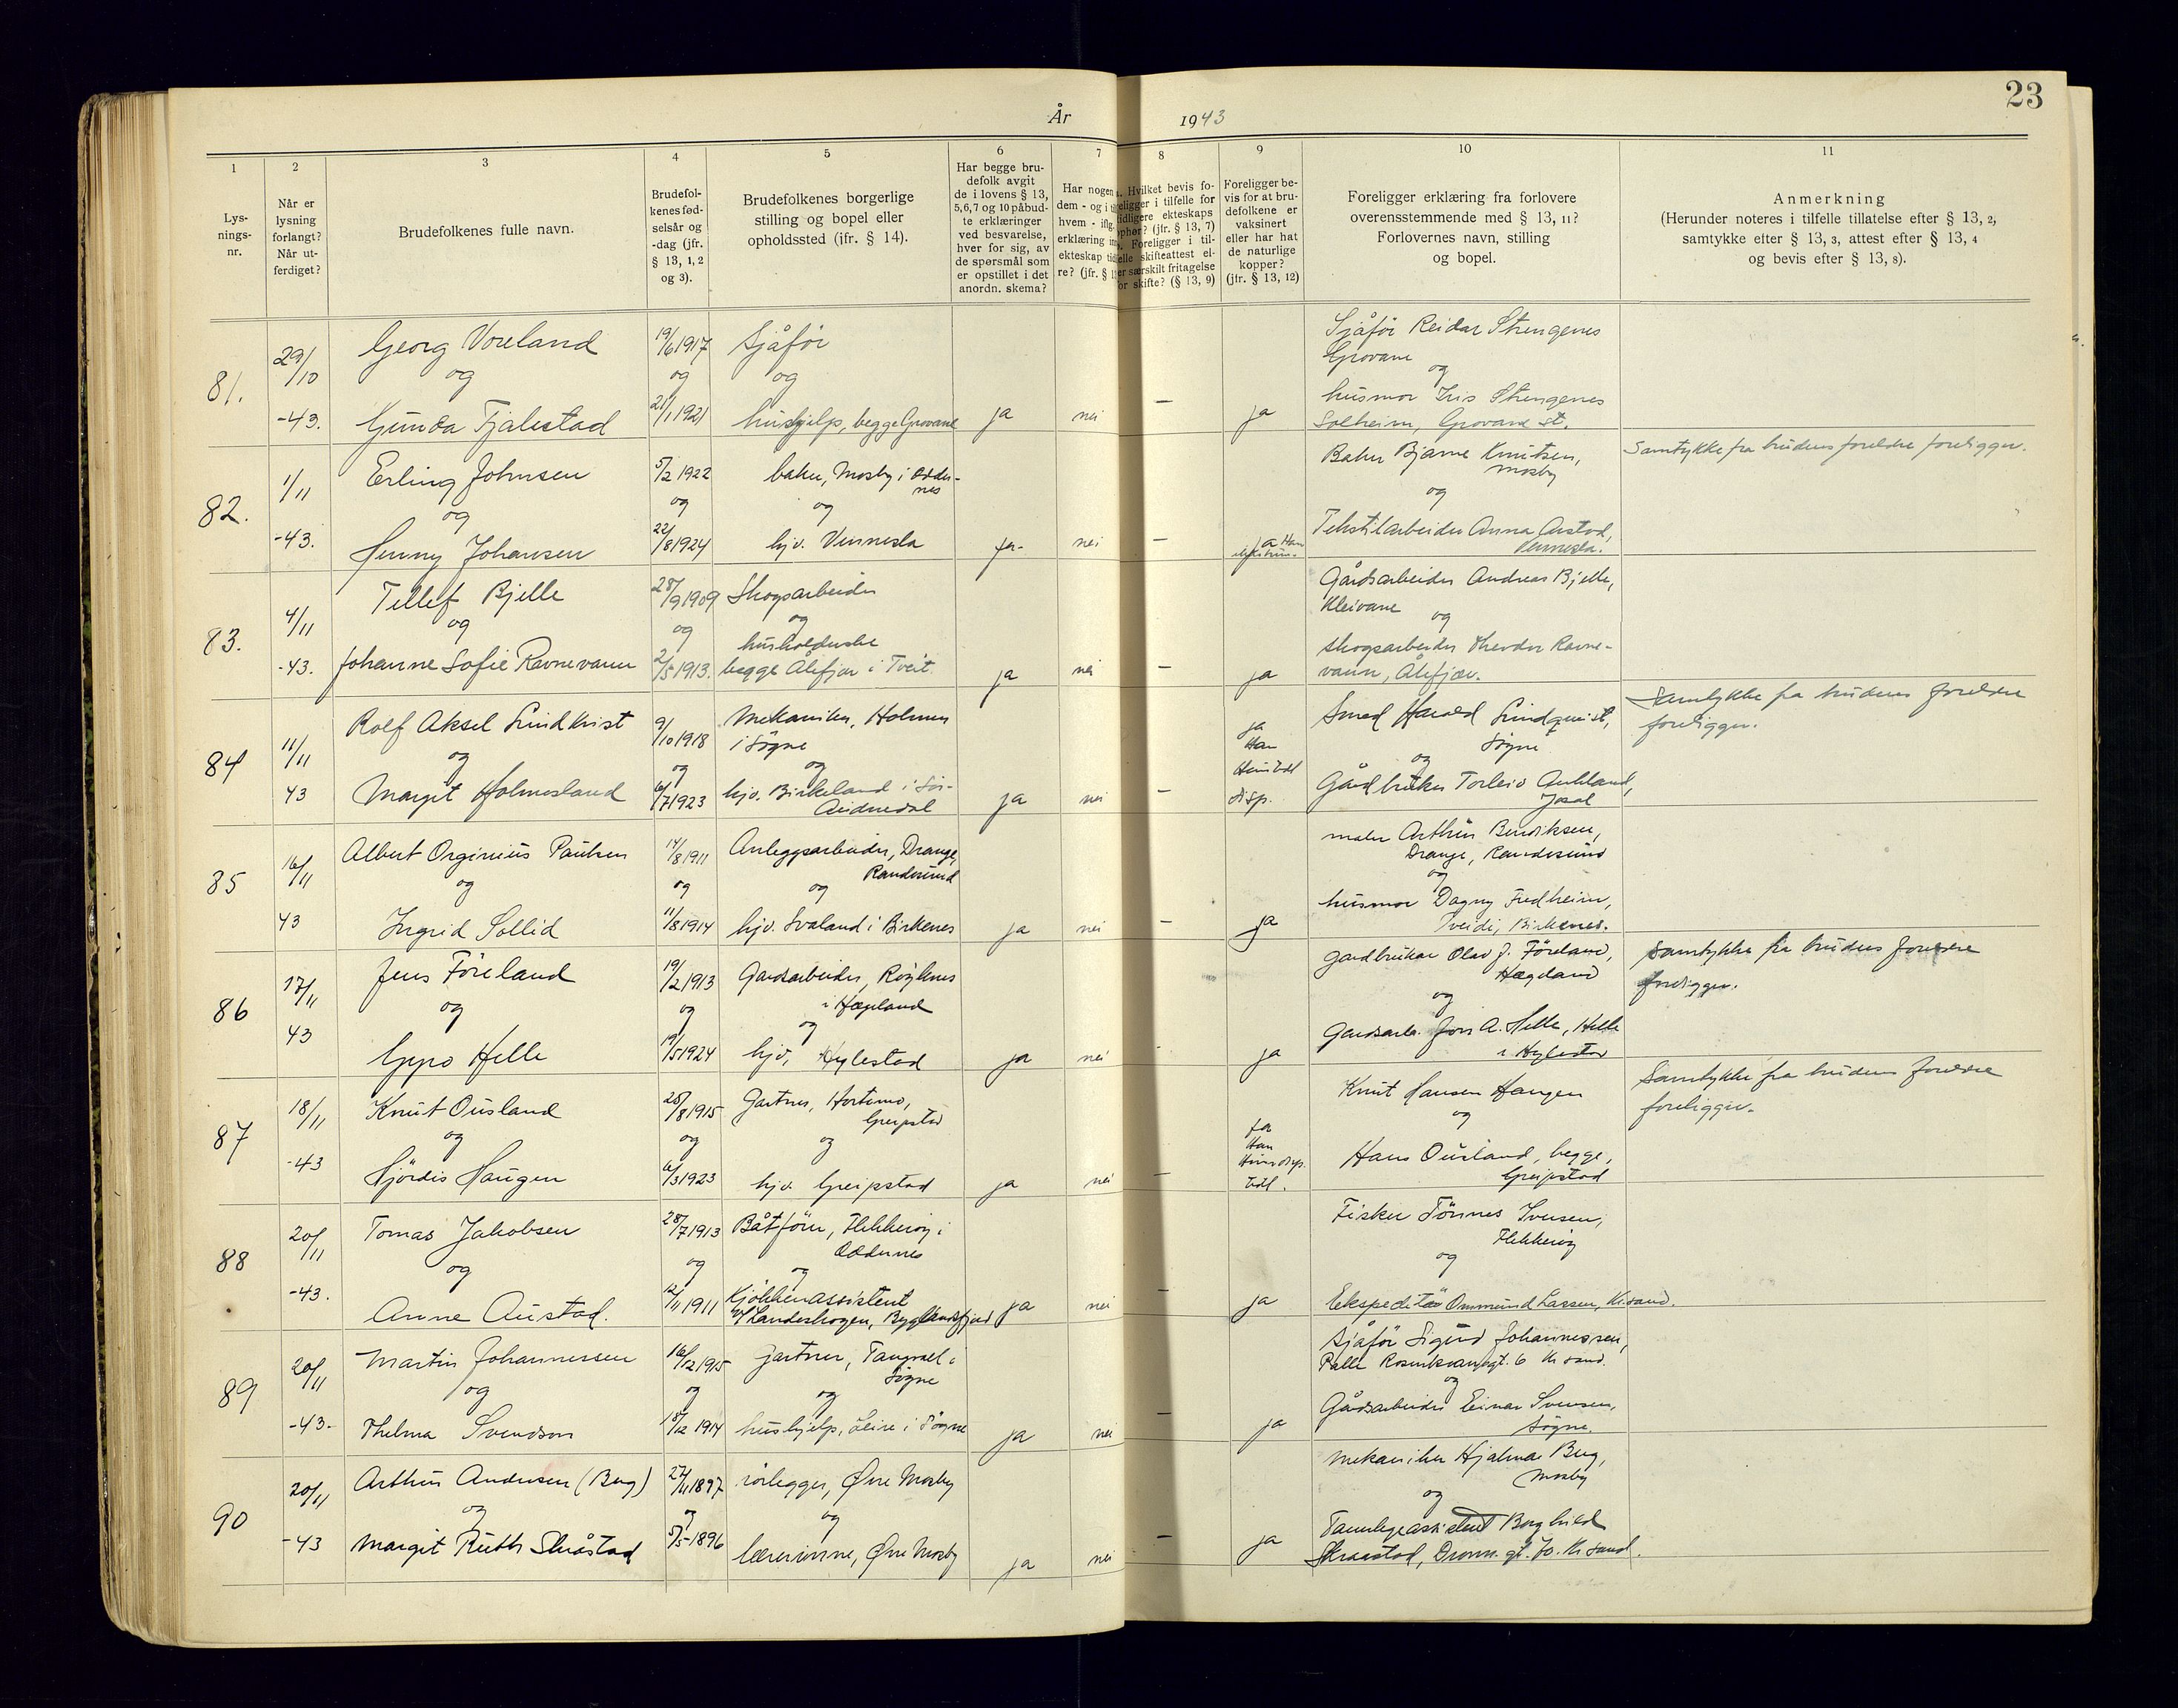 23
År 1943
1
2
3
4
5
6
7
8
9
10
11
Lys-
nings-
nr.
Når er
lysning
forlangt?
Når ut-
ferdiget?
Brudefolkenes fulle navn.
Brudefol-
kenes fød-
selsår og
-dag (jfr.
§ 13, 1, 2
og 3).
Brudefolkenes borgerlige
stilling og bopel eller
opholdssted (jfr. § 14).
Har begge bru-
defolk avgit
de i lovens § 13,
5, 6, 7 og 10 påbud-
te erklæringer
ved besvarelse,
hver for sig, av
de spørsmål som
er opstillet i det
anordn. skema?
Har nogen
dem - og i
hvem - iflg.
erklæring
ekteskap
re? (jfr. §
Hvilket bevis fo-
religger i tilfelle for
tidligere ekteskaps
ophør? (jfr. § 13, 7)
Foreligger i til-
felle skifteattest el-
ler særskilt fritagelse
for skifte? (§ 13, 9)
Foreligger be-
vis for at bru-
defolkene er
vaksinert
eller har hat
de naturlige
kopper?
(jfr. § 13, 12)
Foreligger erklæring fra forlovere
overensstemmende med § 13, 11?
Forlovernes navn, stilling
og bopel.
Anmerkning
(Herunder noteres i tilfelle tillatelse efter § 13, 2,
samtykke efter § 13, 3, attest efter § 13, 4
og bevis efter § 13, 8).
81.
29/10
-43.
Georg Voreland
og
Gunda Tjalestad
19/6 1917
og
21/1 1921
Sjåfør
og
hushjelp, begge Grovane
ja
nei
—
ja
Sjåför Reidar Strengenes
Grovane
og
husmor Iris Strengenes
Solheim, Grovane st.
82.
1/11
-43.
Erling Johnsen
og
Henny Johansen
5/2 1922
og
22/8 1924
baker, Mosby i Odder-
nes
og
hjv. Vennesla
ja
nei
—
ja Han
Baker Bjarne Knutsen,
Mosby
og
Tekstilarbeider Anna Austad,
Vennesla.
Samtykke fra brudens foreldre foreligger.
83.
4/11
-43.
Tellef Bjelle
og
Johanne Sofie Ravnevann
28/9 1909
og
2/5 1913.
Skogsarbeider
og
husholderske
begge Ålefjær i Tveit
ja
nei
—
ja
Gårdsarbeider Andreas Bjelle,
Kleivane
og
skogsarbeider Theodor Ravne-
vann, Ålefjær.
84
11/11
43
Rolf Aksel Lindkvist
og
Margit Holmesland
9/10 1918
og
6/7 1923
Mekaniker, Holmen
i Søgne
og
hjv. Birkeland i Sør-
Audnedal
ja
nei
—
ja
Han
Hun Vdl
disp.
Smed Harald Lindquist,
Søgne
og
Gårdbruker Torleiv Aukland,
Samtykke fra brudens foreldre
foreligger.
85
16/11
43
Albert Orginius Paulsen
og
Ingrid Sollid
14/8 1911
og
11/8 1914
Anleggsarbeider, Drange,
Randesund
og
hjv. Svaland i Birkenes
ja
nei
—
ja
maler Arthur Bendiksen,
Drange, Randesund
og
husmor Dagny Fredheim,
Tveide, Birkenes.
86
17/11
43
Jens Föreland
og
Gyro Helle
19/2 1913
og
19/5 1924
Gardsarbeider, Röyknes
i Hægeland
og
hjv, Hylestad
ja
nei
ja
Gardbruker Olav J. Föreland,
Hægeland
og
Gardsarb. Jon A. Helle, Helle
i Hylestad
Samtykke fra brudens foreldre
foreligger.
87
18/11
-43
Knut Ousland
og
Hjördis Haugen
25/8 1915
og
6/3 1923
Gartner, Hortemo,
Greipstad
og
hjv. Greipstad
ja
nei
—
ja
Han
Hun disp.
Vdl.
Knut Hansen Haugen
og
Hans Ousland, begge,
Greipstad
Samtykke fra brudens foreldre
foreligger.
88
20/11
-43.
Tomas Jakobsen
og
Anne Austad.
28/7 1913
og
12/11 1911
Båtförer, Flekkeröy i
Oddernes
og
Kjökkenassistent
v/ Landeskogen, Byglandsfjord
ja
nei
—
ja
Fisker Tönnes Iversen,
Flekkeröy
og
Ekspeditör Ommund Larsen, Kr.sand.
89
20/11
-43-
Martin Johannessen
og
Thelma Svendsen
16/12 1915
og
18/12 1914
gartner, Tangvall i
Søgne
og
hushjelp, Leire i Søgne
ja
nei
—
ja
Sjåför Sigurd Johannessen,
Palle Rosenkransgt. 6 Kr sand.
og
Gårdsarbeider Einar Svensen,
Søgne.
90
20/11
-43
Arthur Andersen (Berg)
og
Margit Ruth Skråstad
27/11 1897
og
5/5-1896
rørlegger, Øvre Mosby
og
lærerinne, Øvre Mosby
ja
nei
—
ja
Mekaniker Hjalmar Berg,
Mosby
og
Tannlegeassistent Borghild
Skraastad, Dronn. gt. 70. Kr sand.